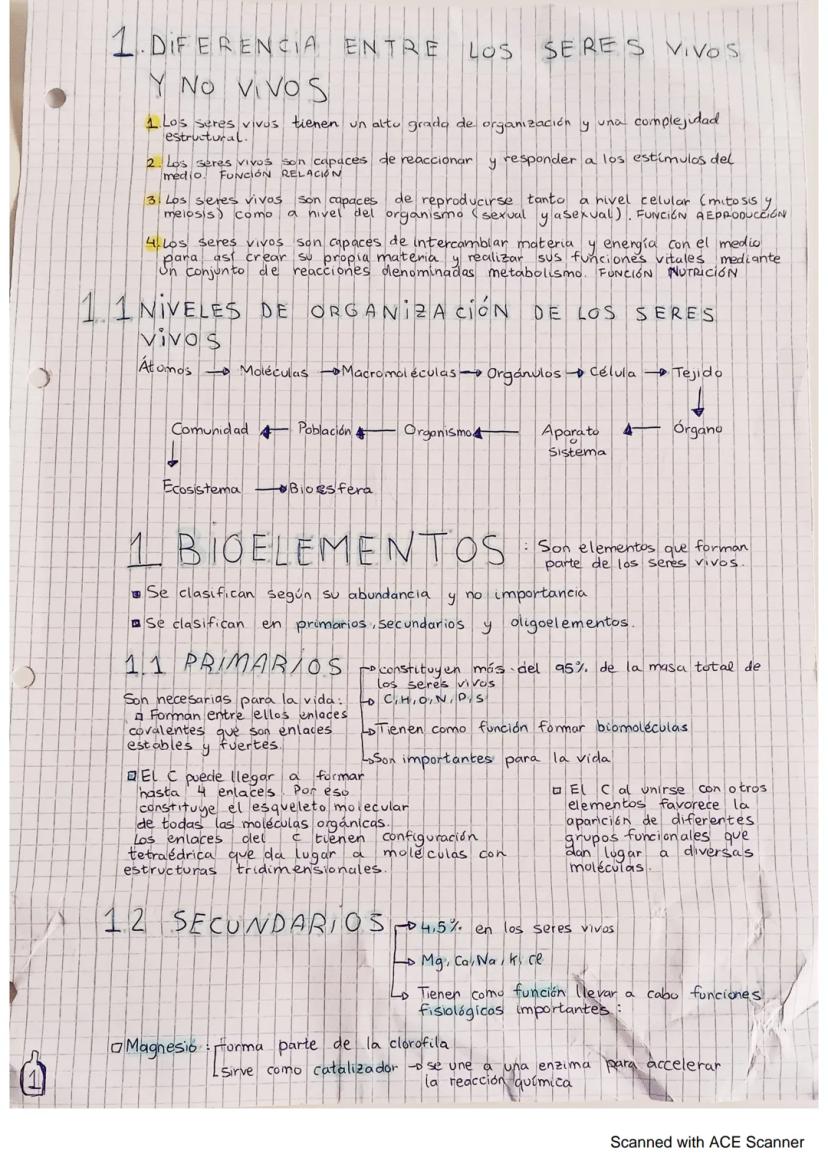 1. DIFERENCIA ENTRE LOS SERES VIVOS
Y NO VIVOS
1. Los seres vivos tienen un alto grado de organización y una complejidad
estructural.
2. Los seres vivos son capaces de reaccionar y responder a los estímulos del
medio. FUNCIÓN RELACIÓN
3. Los seres vivos son capaces de reproducirse tanto a nivel celular (mitosis y
meiosis) como a nivel del organismo (sexual y asexual). FUNCIÓN REPRODUCCIÓN
4. Los seres vivos son capaces de intercambiar materia y energía con el medio
para así crear su propia materia y realizar sus funciones vitales mediante
un conjunto de reacciones denominadas metabolismo. FUNCIÓN NUTRICIÓN
1.1 NIVELES DE ORGANIZACIÓN DE LOS SERES
VIVOS
Átomos → Moléculas → Macromoléculas → Orgánulos → Célula → Tejido
↓
Comunidad ← Población ← Organismo ← Aparato ← Órgano
o
Sistema
↓
Ecosistema → Bioesfera
1 BIOELEMENTOS : Son elementos que forman
parte de los seres vivos.
Se clasifican según su abundancia y no importancia
Se clasifican en primarios, secundarios y oligoelementos.
1.1 PRIMARIOS → constituyen más del 95% de la masa total de
los seres vivos
→ C, H, O, N, P, S
→ Tienen como función formar biomoléculas
→ Son importantes para la vida
Son necesarias para la vida:
Forman entre ellos enlaces
covalentes que son enlaces
estables y fuertes.
El C puede llegar a formar
hasta 4 enlaces. Por eso
constituye el esqueleto molecular
de todas las moléculas orgánicas.
Los enlaces del C tienen configuración
tetraédrica que da lugar a moléculas con
estructuras tridimensionales.
El C al unirse con otros
elementos favorece la
aparición de diferentes
grupos funcionales que
dan lugar a diversas
moléculas.
1.2 SECUNDARIOS → 4,5% en los seres vivos
→ Mg, Ca, Na, K, Cl
→ Tienen como función llevar a cabo funciones
fisiológicas importantes:
Magnesio: forma parte de la clorofila
sirve como catalizador → se une a una enzima para accelerar
la reacción química
1
Scanned with ACE Scanner